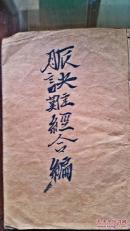 脤訣難經合編